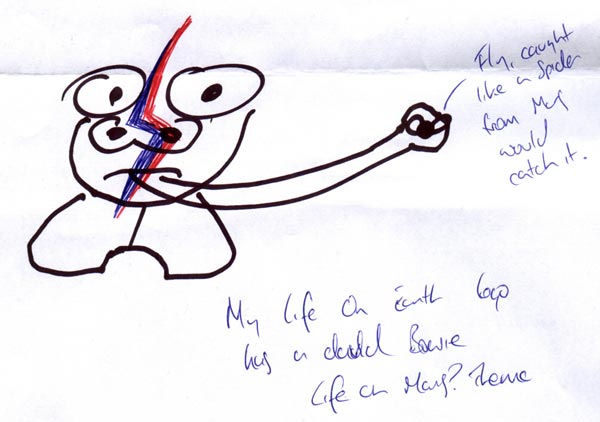 Fly, caught
like a spider
from Mars
would
catch it.
My Life On Earth logo
has a David Bowie
Life on Mars? Theme